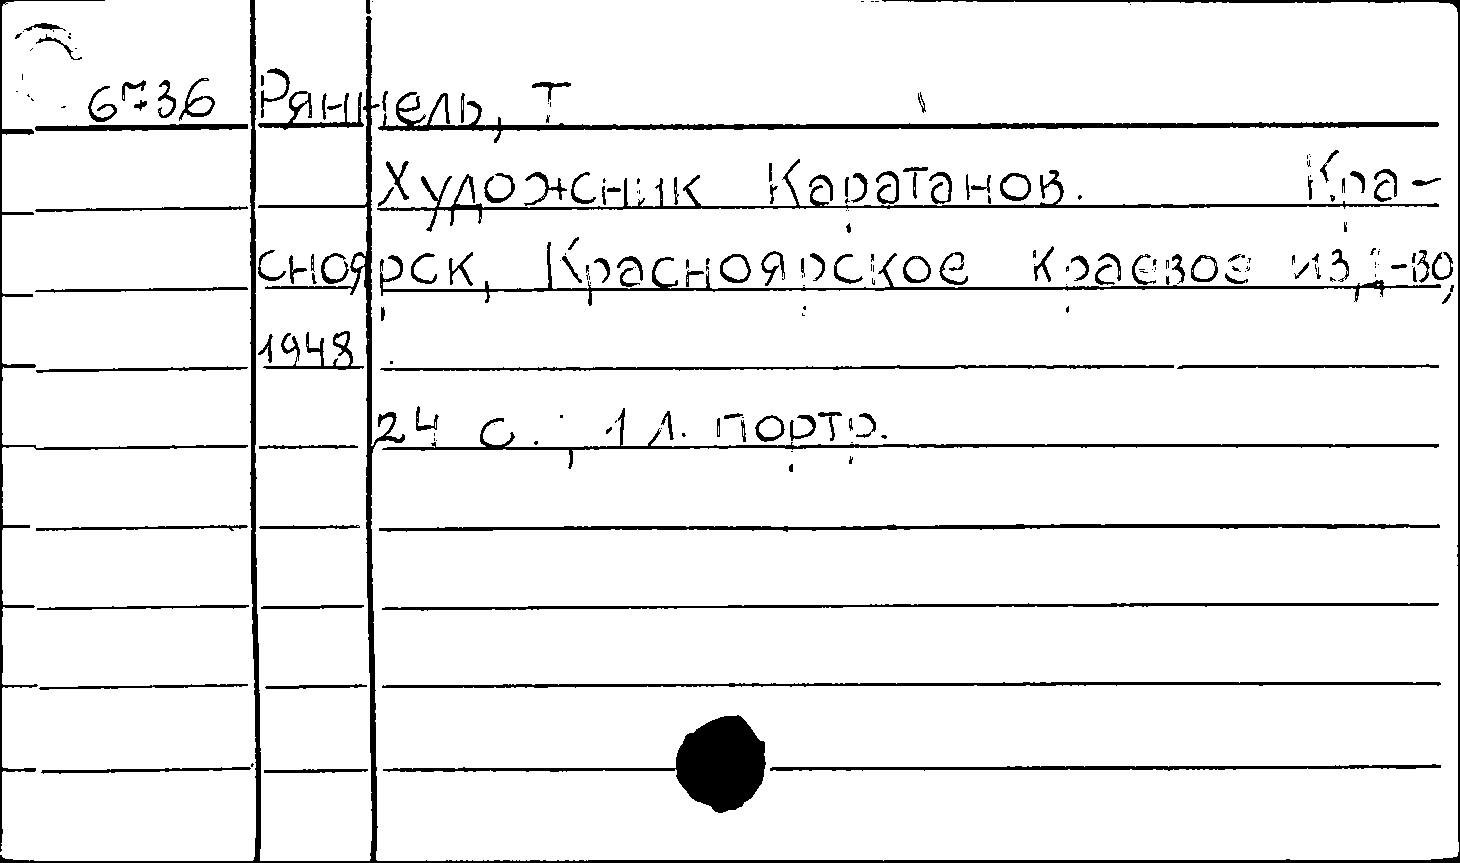 6736 Ряннель, Т.
Художник Каратанов. Кра-
сноярск, Красноярское краевое изд-во,
1948.
24 с., 1 л. портр.